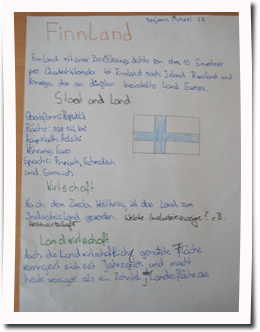 Benjamin
FINNLAND
Finnland mit einer Bevölkerungsdichte von etwa 15 Einwohner
pro Quadratkilometer ist Finnland nach Island Russland und
Norwegen das am dünnsten besiedelte Land Europas.
Staat and Land
Staatsform: Republik
Fläche:
Hauptstadt: Helsinki
Währung: Euro
Sprache: Finnisch, Schwedisch
und Samisch
Wirtschaft
Nach dem Zweiten Weltkrieg ist das Land zum
Industrieland geworden. Welche Industriezweige? z.B.
Landwirtschaft
Auch die Landwirtschaftliche genutzte Fläche
verringert sich seit Jahrzehnten und macht
heute weniger als ein Zehntel Landesfläche aus